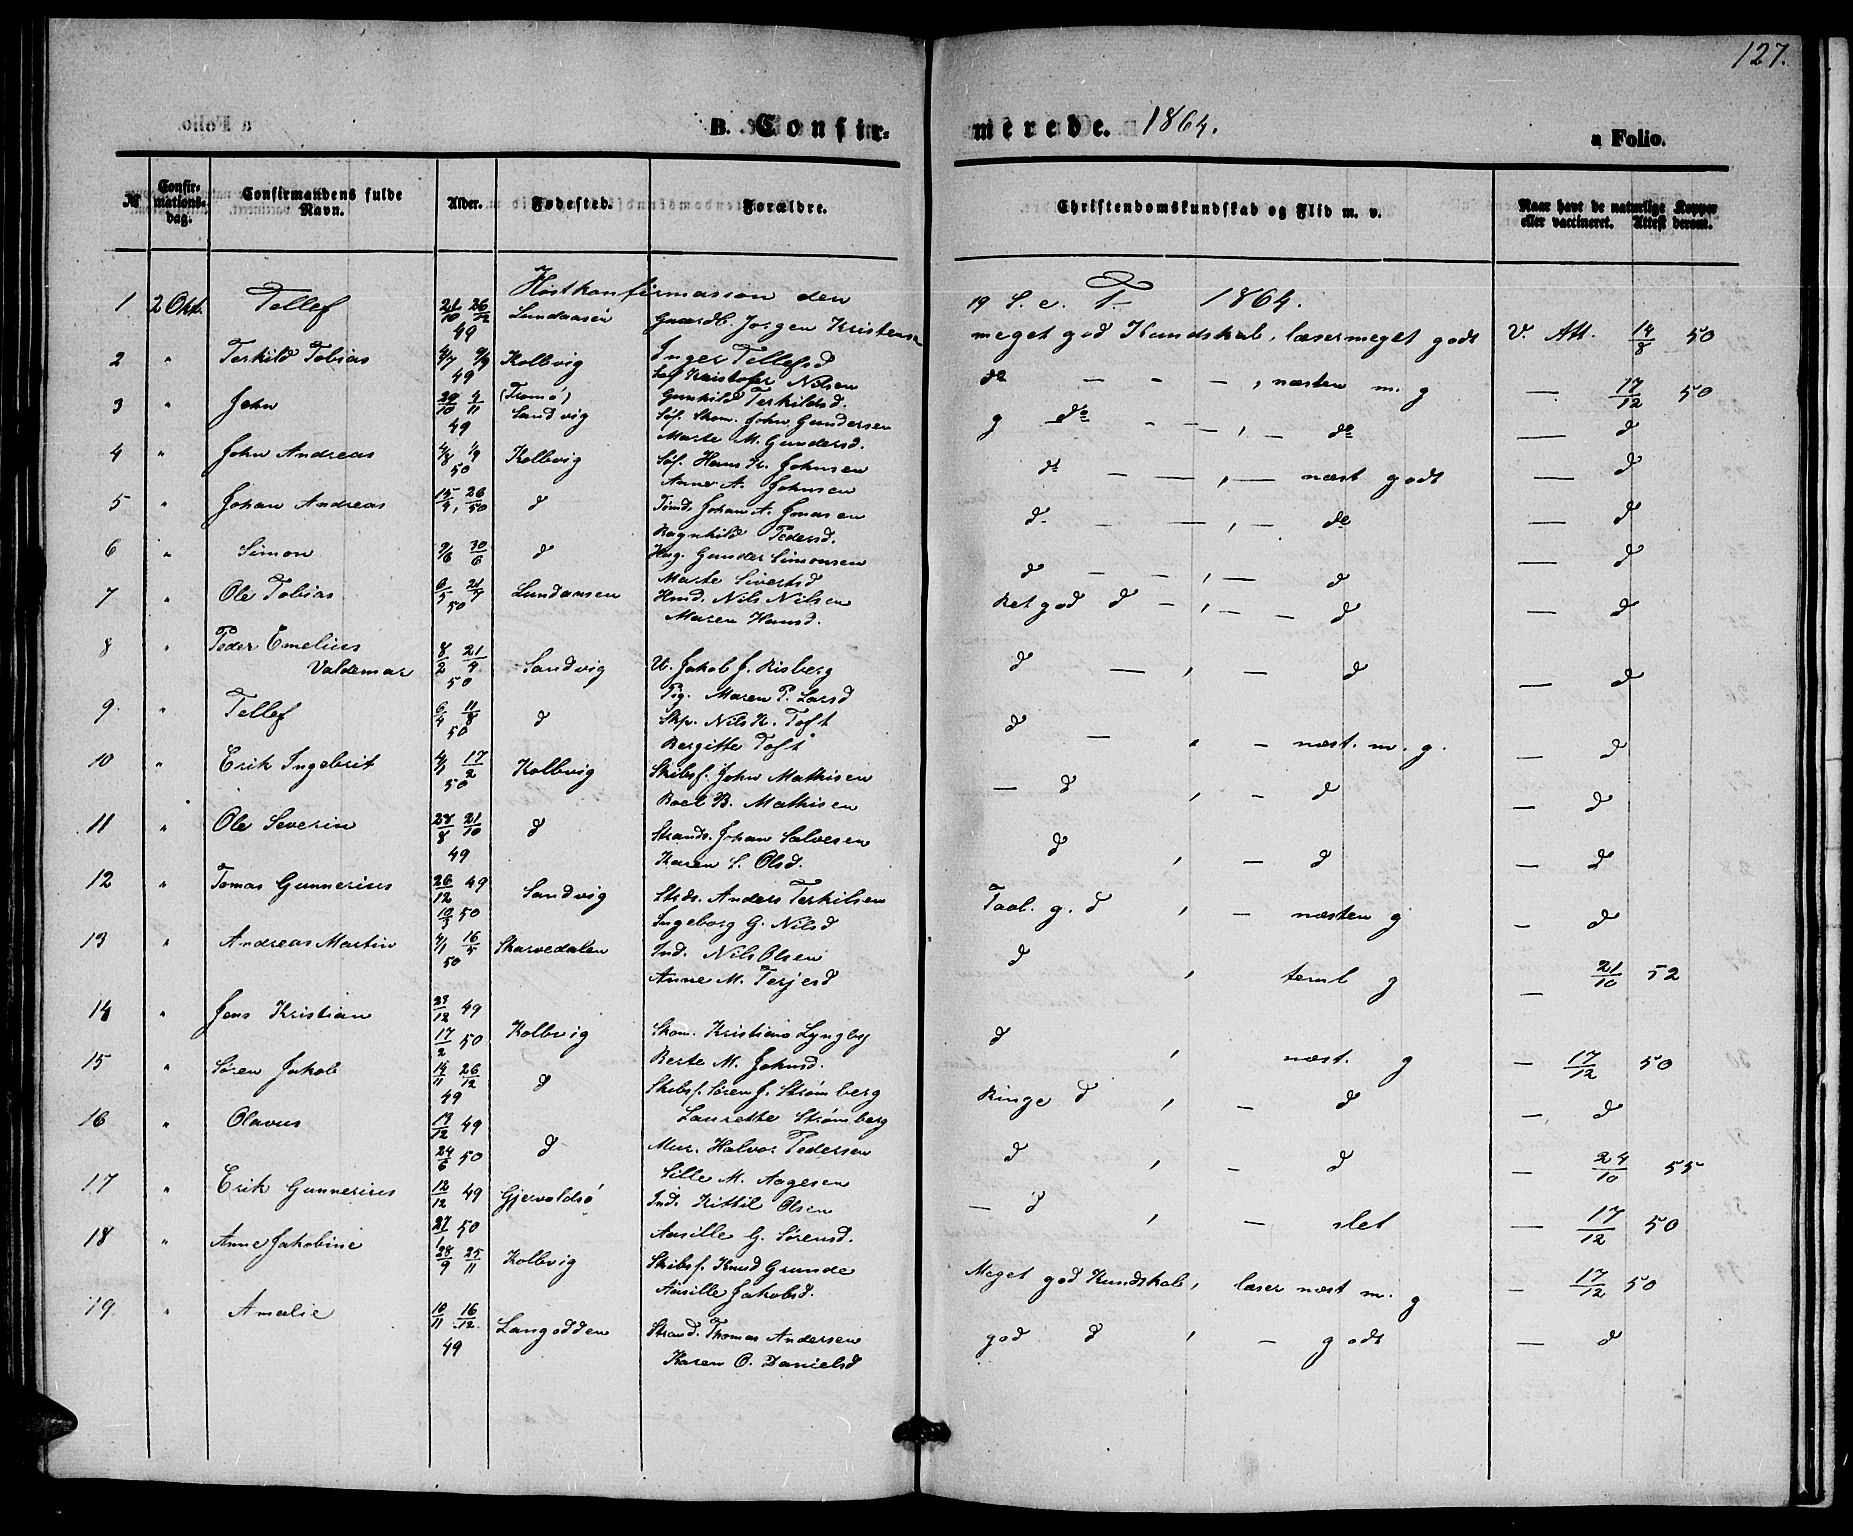 127.
B. Confir- merede. 1864. a Folio.
№ Confir-mations-dag. Confirmandens fulde Navn. Alder. Fødested. Forældre. Christendomskundskab og Flid m. v. Naar havt de naturlige Kopper eller vaccineret. Attest derom.
Høstkonfirmasion den 19 S. e. T. 1864.
1 2 Okt. Tellef 21/10 26/12 49 Lundaasen Gaardb. Jørgen Kristensen meget god Kundskab, læser meget godt V. Att. 14/8 50
Inger Tellefsd
2 " Terkild Tobias 4/7 9/9 49 Kolbvig Søf. Kristofer Nilsen do — - —, næsten m. g — 17/12 50
Gunhild Terkildsd.
3 " John 29/10 4/11 49 (Tromø) Sandvig Søf. Skom. John Gundersen g do - - —, — do — d
Marte M. Gundersd.
4 " John Andreas 4/8 1/9 50 Kolbvig Søf. Hans K. Johnsen do — —, — næst godt — d
Anne A. Johnsen
5 " Johan Andreas 15/4, 26/50 d Tømd. Johan A. Jonasen d — —, — do — d
Ragnhild Pedersd.
6 " Simon 9/6 30/6 d Hug. Gunder Simonsen d — —, — d — d
Marte Sivertsd
7 " Ole Tobias 6/5 21/7 50 Lundaasen Hmd. Nils Nilsen Ret god d - , — d — d
Maren Hansd.
8 " Peder Emelius
Valdemar 8/2 21/4 50 Sandvig U. Jakob J. Risberg d — , — d — d
Pig. Maren P. Larsd
9. " Tellef 6/4 11/8 50 d Skp. Nils K. Toft d — " — næst. m. g. — d
Bergitte Toft
10 " Erik Ingebrit 4/1 17/2 50 Kolbvig Skibsf. John Mathisen — d , — d — d
Boel B. Mathisen
11 " Ole Severin 28/8 21/10 49 d Strands. Johan Salvesen d , — d — d
Karen S. Olsd.
12 " Tomas Gunnerius 26/12 49 10/3 50 Sandvig Strds. Anders Terkilsen Taal. g. d , — næsten g — d
Ingeborg G. Nilsd
13 " Andreas Martin 4/1 16/5 50 Skarvedalen Ind. Nils Olsen d , teml g — 21/10 52
Anne M. Terjesd
14 " Jens Kristian 23/12 49 17/2 50 Kolbvig Skom. Kristians Lyngby d , næst. g — 17/12 50
Berte M. Johnsd.
15 " Søren Jakob 14/11 26/12 49 d Skibsf. Søren J. Strømberg Ringe d , — d — d
Laurette Strømberg
16 " Olavus 19/12 49 24/6 50 d Mur. Halvor Pedersen d , — d — 24/10 55
Sille M. Aagesen
17 " Erik Gunnerius 12/12 49 27/1 50 Gjervoldsø Ind. Kittil Olsen — d , — slet — 17/12 50
Aasille G. Sørensd.
18 " Anne Jakobine 28/9 25/11 Kolbvig Skibsf. Knud Grunde Meget god Kundskab, læser næst m. g — 17/12 50
Aasille Jakobsd.
19 " Amalie 10/11 16/12 49 Langodden Strand. Thomas Andersen god d , — godt — d
Karen O. Danielsd